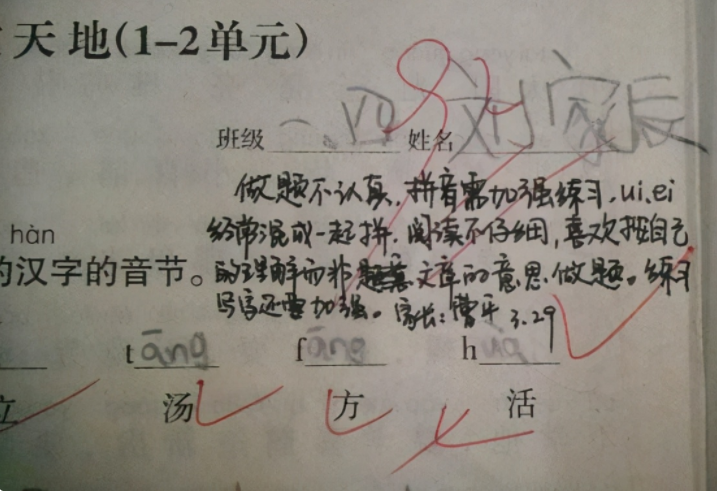 天地(1-2单元)
班级 一.四 姓名 刘家辰
做题不认真,拼音需加强练习,ui.ei
经常混成一起拼.阅读不仔细,喜欢按自己
hàn
的理解而非文章的意思做题。练习
的汉字的音节。
写字还要加强。家长:曹平 3.29
tāng fāng h
立 汤 方 活